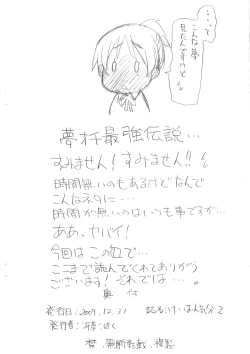 …って
こんな夢
見たんですけど
夢オチ最強伝説…
すみません!すみません!!
時間無いのもあるけどなんで
こんなネタに…
時間が無いのはいつも事ですが…
ああ、ヤバイ!
今回はこの辺で…
ここまで読んでくれてありがとう
ございます!それでは…。
発行日:2009.12.31
発行者:
禁・無断転載・複製